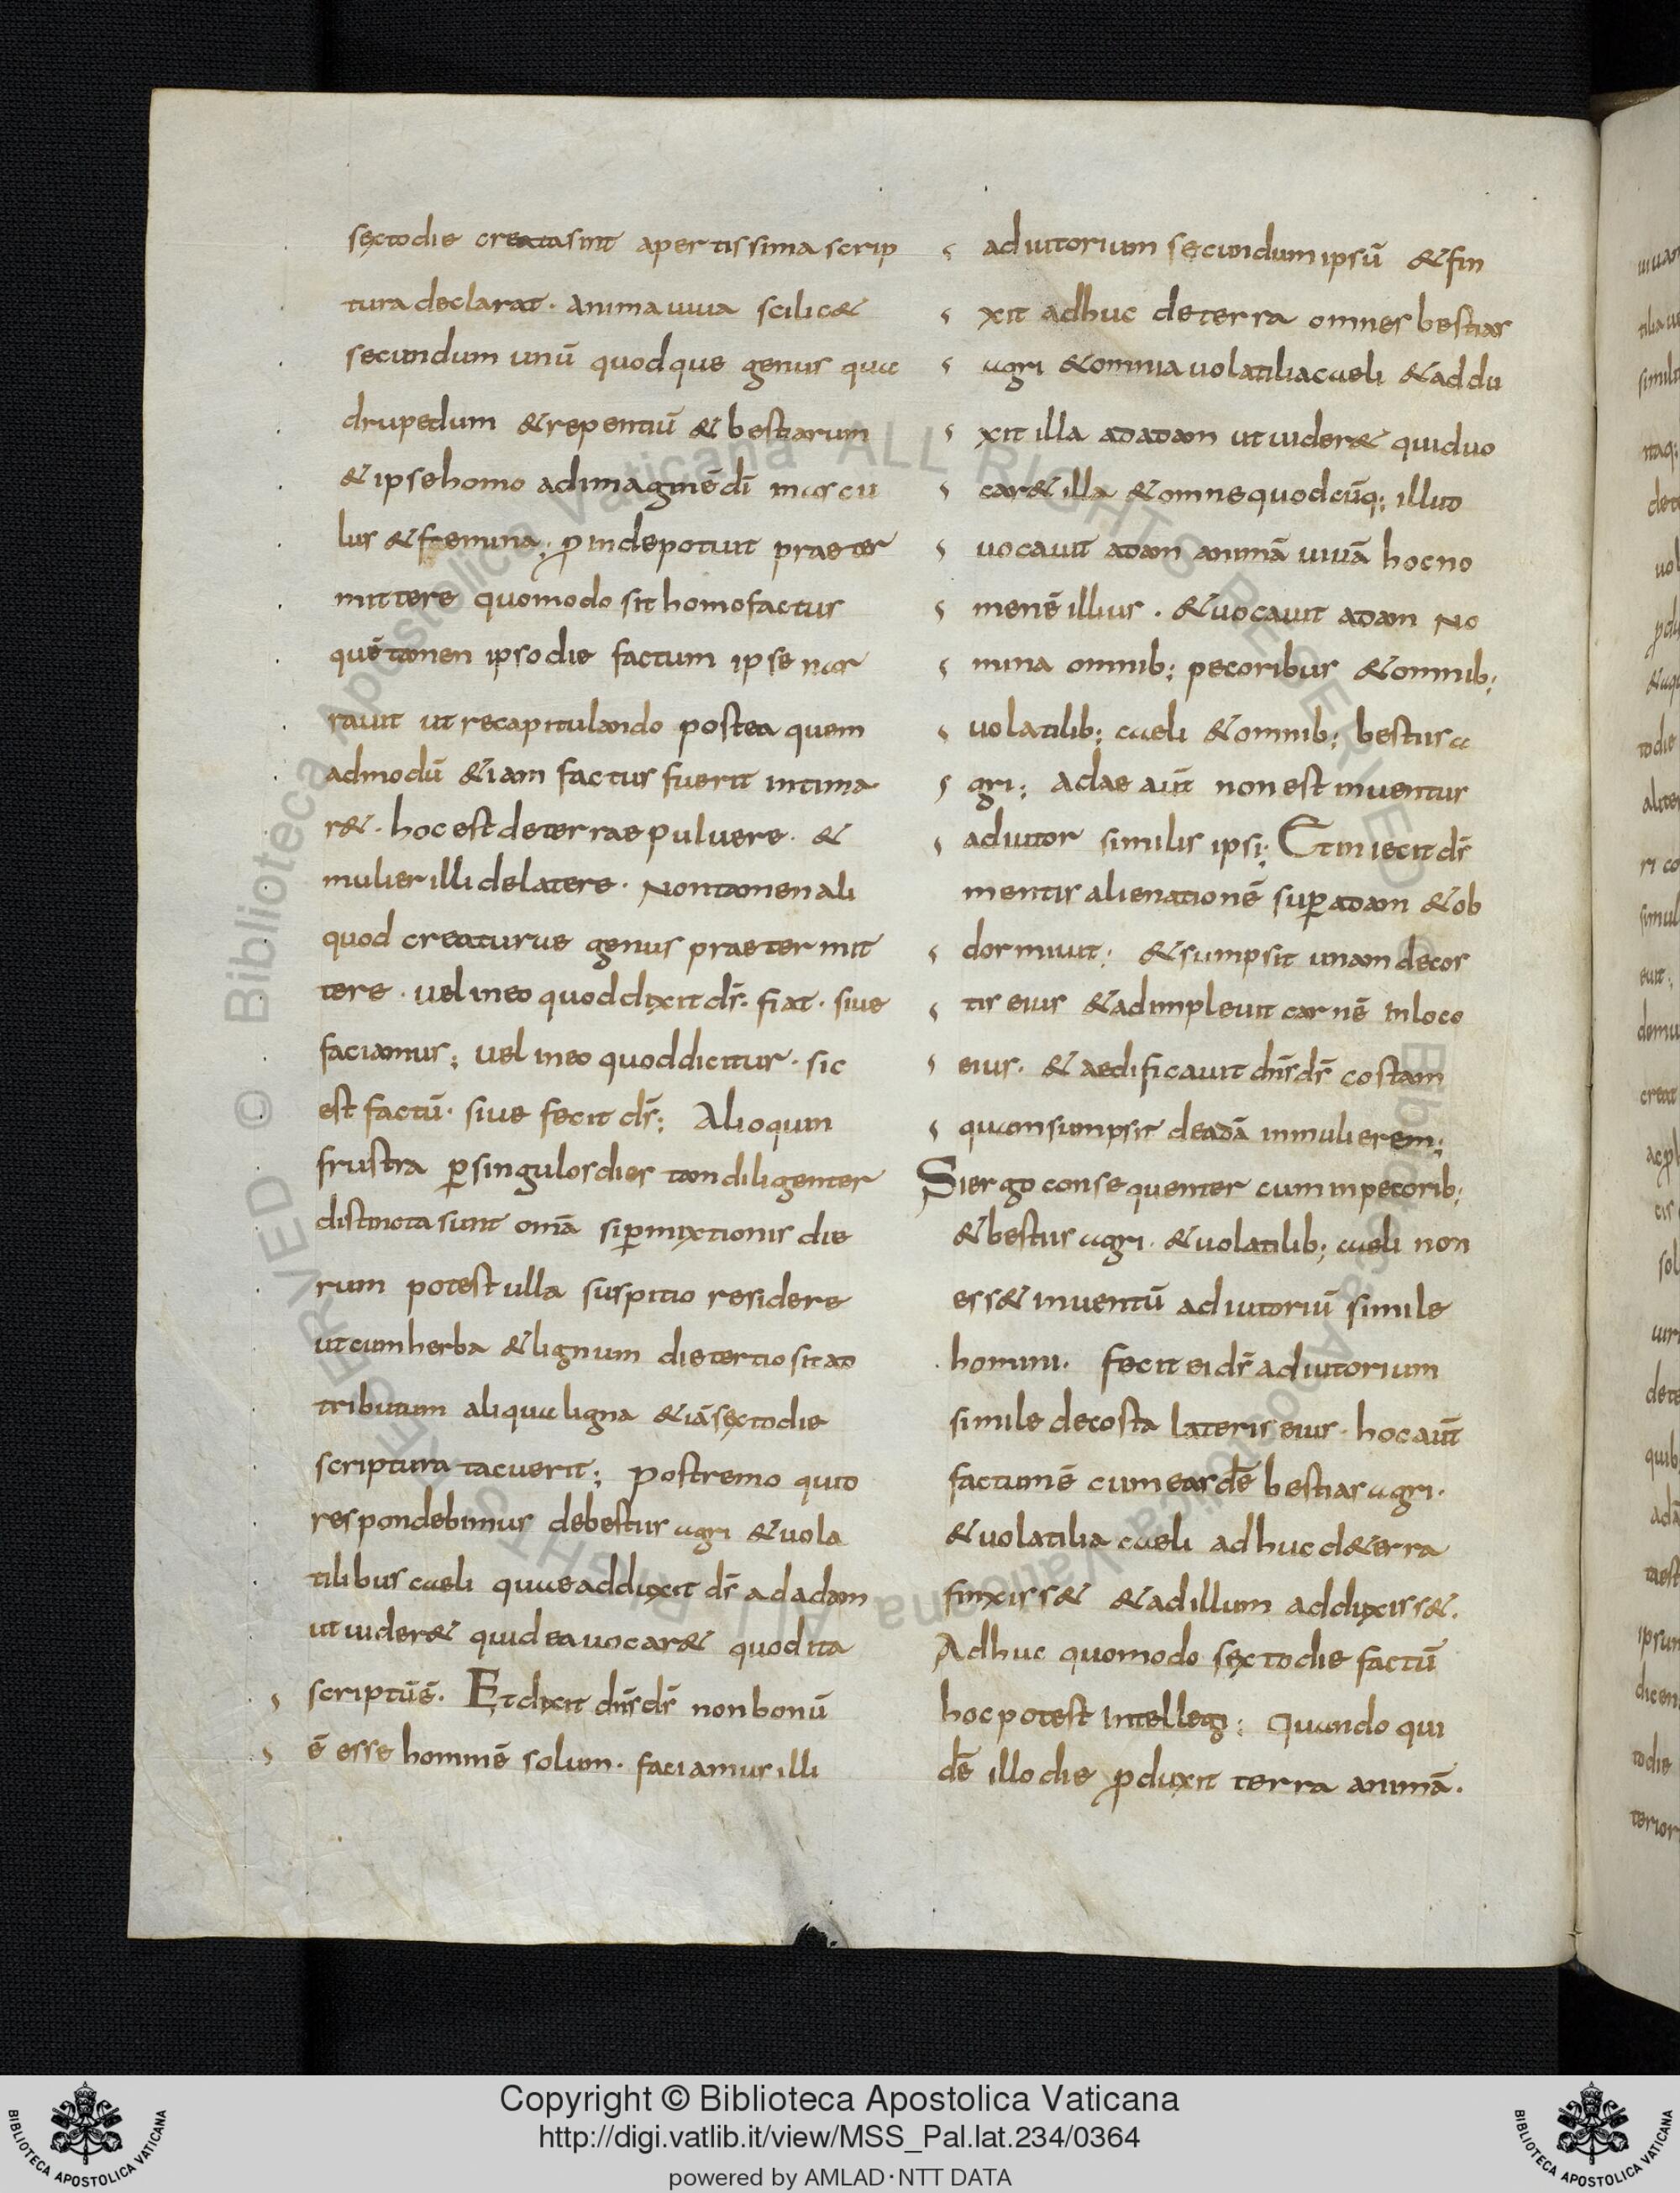 sexto die creata sint apertissima scrip
tura declarat · anima uiua scilic&
secundum unū quodque genus qua
drupedum & repentiū & bestiarum
& ipse homo ad imaginē dī mascu
lus & femina; ꝓinde potuit praeter
mittere quomodo sit homo factus
quē tamen ipso die factum ipse nar
rauit ut recapitulando postea quem
admodū &iam factus fuerit intima
r& · hoc est de terrae puluere · &
mulier illi de latere · Non tamen ali
quod creaturae genus praetermit
tere · uel in eo quod dixit d̄s · fiat · siue
faciamus; uel in eo quod dicitur · sic
est factū · siue fecit d̄s; Alioquin
frustra ꝑ singulos dies tam diligenter
distincta sunt om̄a si ꝑmixtionis die
rum potest ulla suspitio residere
ut cum herba & lignum die tertio sit ad
tributum aliqua ligna & iā sexto die
scriptura tacuerit; postremo quid
respondebimus de bestiis agri & uola
tilibus caeli quae adduxit d̄s ad adam
ut uider& quid ea uocar& quod ita
scriptū ē · Et dixit dn̄s d̄s non bonū
ē esse hominē solum · faciamus illi
adiutorium secundum ipsū & fin
xit adhuc de terra omnes bestias
agri & omnia uolatilia caeli & addu
xit illa ad adam ut uider& quid uo
car& illa & omne quodcūq; illud
uocauit adam animā uiuā hoc no
men ē illius · & uocauit adam No
mina omnib; pecoribus & omnib;
uolatilib; caeli & omnib; bestiis a
gri; adae aūt non est inuentus
adiutor similis ipsi; Et iniecit d̄s
mentis alienationē suꝑ adam & ob
dormiuit; & sumpsit unam de cos
tis eius & adimpleuit carnē in loco
eius · & aedificauit dn̄s d̄s costam
quam sumpsit de adā in mulierem;
Si ergo consequenter cum in pecorib;
& bestiis agri · & uolatilib; caeli non
ess& inuentū adiutoriū simile
homini · fecit ei d̄s adiutorium
simile de costa lateris eius · hoc aūt
factum ē cum easdē bestias agri ·
& uolatilia caeli adhuc d&erra
finxiss& & ad illum adduxiss& ·
Adhuc quomodo sexto die factū
hoc potest intellegi; Quando qui
dē illo die ꝓduxit terra animā ·
Copyright © Biblioteca Apostolica Vaticana
http://digi.vatlib.it/view/MSS_Pal.lat.234/0364
powered by AMLAD·NTT DATA